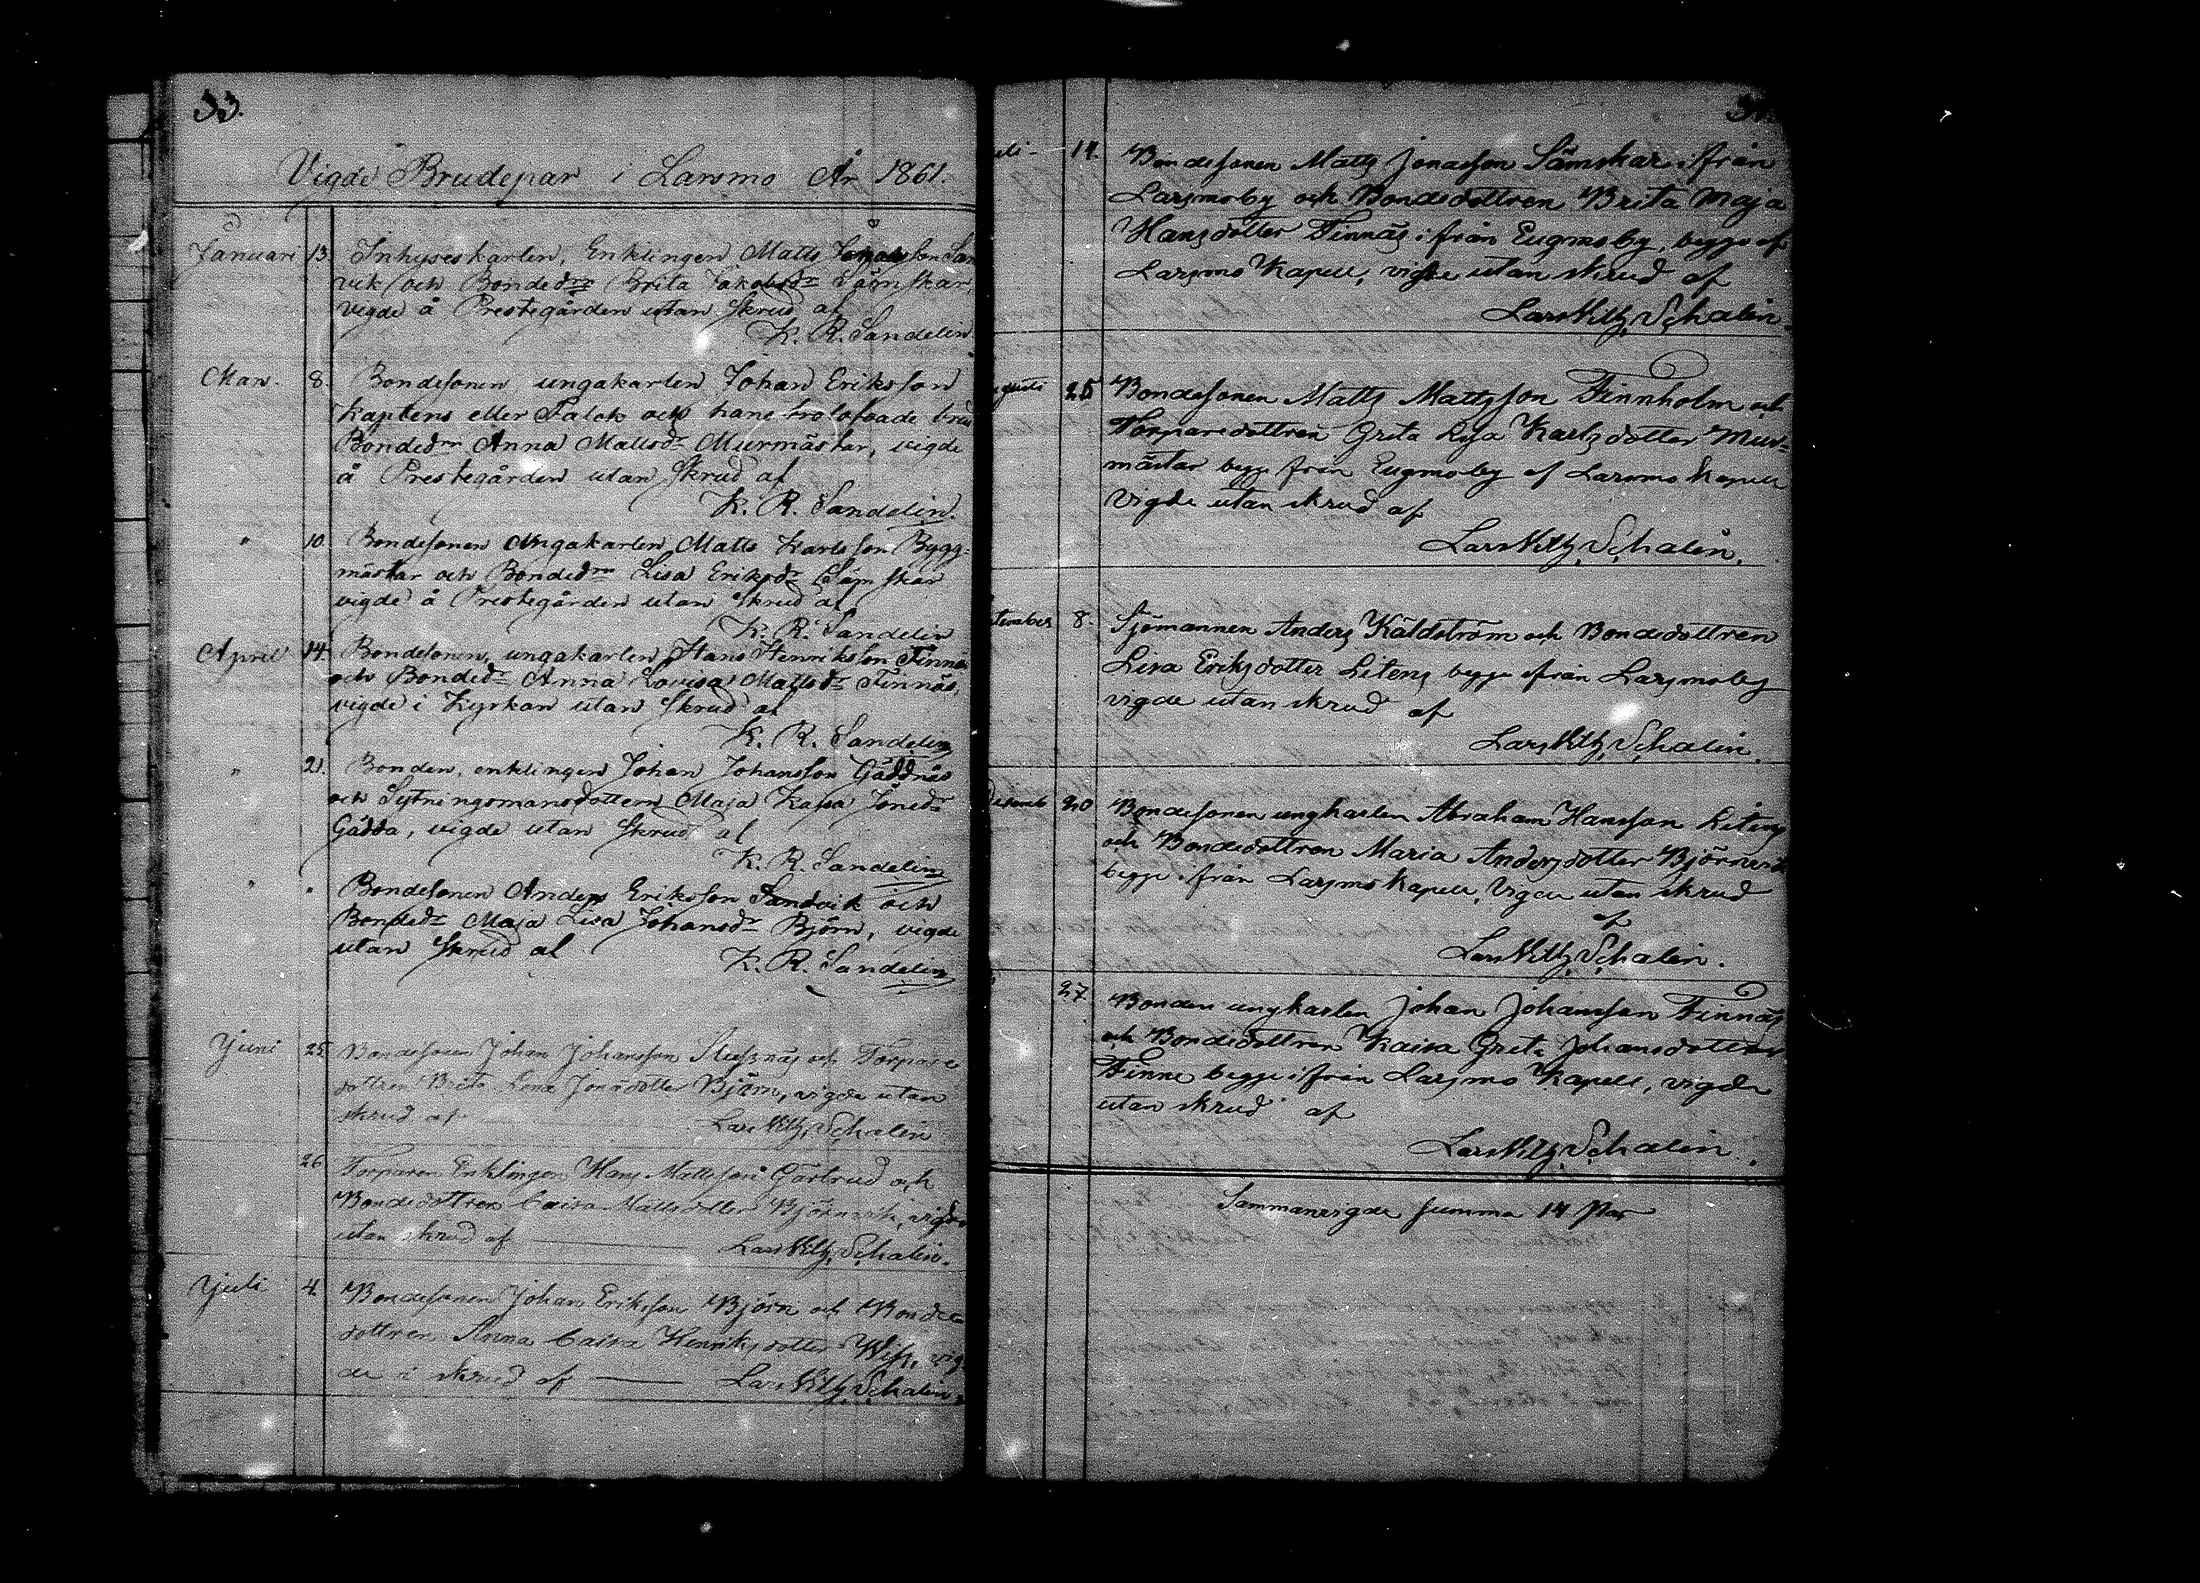 33.
Vigde Brudepar i Larsmo År 1861.
Januari 13. Inhyseskarlen, Enklingen Matts Jonasson San
vik och Bondedrn Brita Jakobsdr Sämskar,
vigde å Prestegården utan Skrud af
K. R. Sandelin
Mars. 8. Bondesonen ungakarlen Johan Eriksson
Kaptens eller Falck och hans trolofvade brud
Bondedrn Anna Mattsdr Murmästar, vigde
å Prestegården utan Skrud af
K. R. Sandelin.
" 10. Bondesonen Ungakarlen Matts Karlsson Bygg-
mästar och Bondedrn Lisa Eriksdr Sämskar
vigde å Prestegården utan Skrud af
K. R. Sandelin
April 14. Bondesonen, ungakarlen Hans Henriksson Finnäs
och Bondedr Anna Lovisa Mattsdr Finnäs,
vigde i Kyrkan utan Skrud af
K. R. Sandelin
" 21. Bonden, enklingen Johan Johansson Gäddnäs
och Sytningsmansdottern Maja Kajsa Jonedr
Gädda, vigde utan Skrud af
K. R. Sandelin
" " Bondesonen Anders Eriksson Sandvik och
Bondedr Maja Lisa Johansdr Björn, vigde
utan Skrud af K. R. Sandelin
Juni 25. Bondesonen Johan Johansson och Torpare
dottren Brita Lena Jonasdotter Björn, vigde utan
skrud af Lars Vilh. Schalin
26 Torparen Enklingen Hans Mattsson Gertrud och
Bondedottren Caisa Mattsdotter Björnvik, vigde
utan skrud af Lars Vilh. Schalin.
Juli 4. Bondesonen Johan Eriksson Björn och Bonde
dottren Anna Caisa Henriksdotter Wist, vig-
de i skrud af Lars Vilh. Schalin.
uli 14. Bondesonen Matts Jonasson Sämskar ifrån
Larsmoby och Bondedottren Brita Maja
Hansdotter Finnäs ifrån Eugmoby, begge af
Larsmo Kapell, vigde utan skrud af
Lars Vilh. Schalin.
gusti 25 Bondesonen Matts Mattsson Finnholm och
Torparedottren Greta Lisa Karlsdotter Mur-
mästar begge från Eugmoby af Larsmo Kapell
vigde utan skrud af
Lars Vilh. Schalin.
tember 8. Sjömannen Anders Käldström och Bondedottren
Lisa Eriksdotter Litens begge ifrån Larsmoby
vigde utan skrud af
Lars Vilh. Schalin.
Decemb 20 Bondesonen ungkarlen Abraham Hansson Litens
och Bondedottren Maria Andersdotter Björnvik
begge ifrån Larsmo Kapell, vigde utan skrud
af
Lars Vilh. Schalin.
27. Bonden ungkarlen Johan Johansson Finnäs
och Bondedottren Kaisa Greta Johansdotter
Finne begge ifrån Larsmo Kapell, vigde
utan skrud af
Lars Vilh. Schalin.
Sammanvigde summa 14 Par